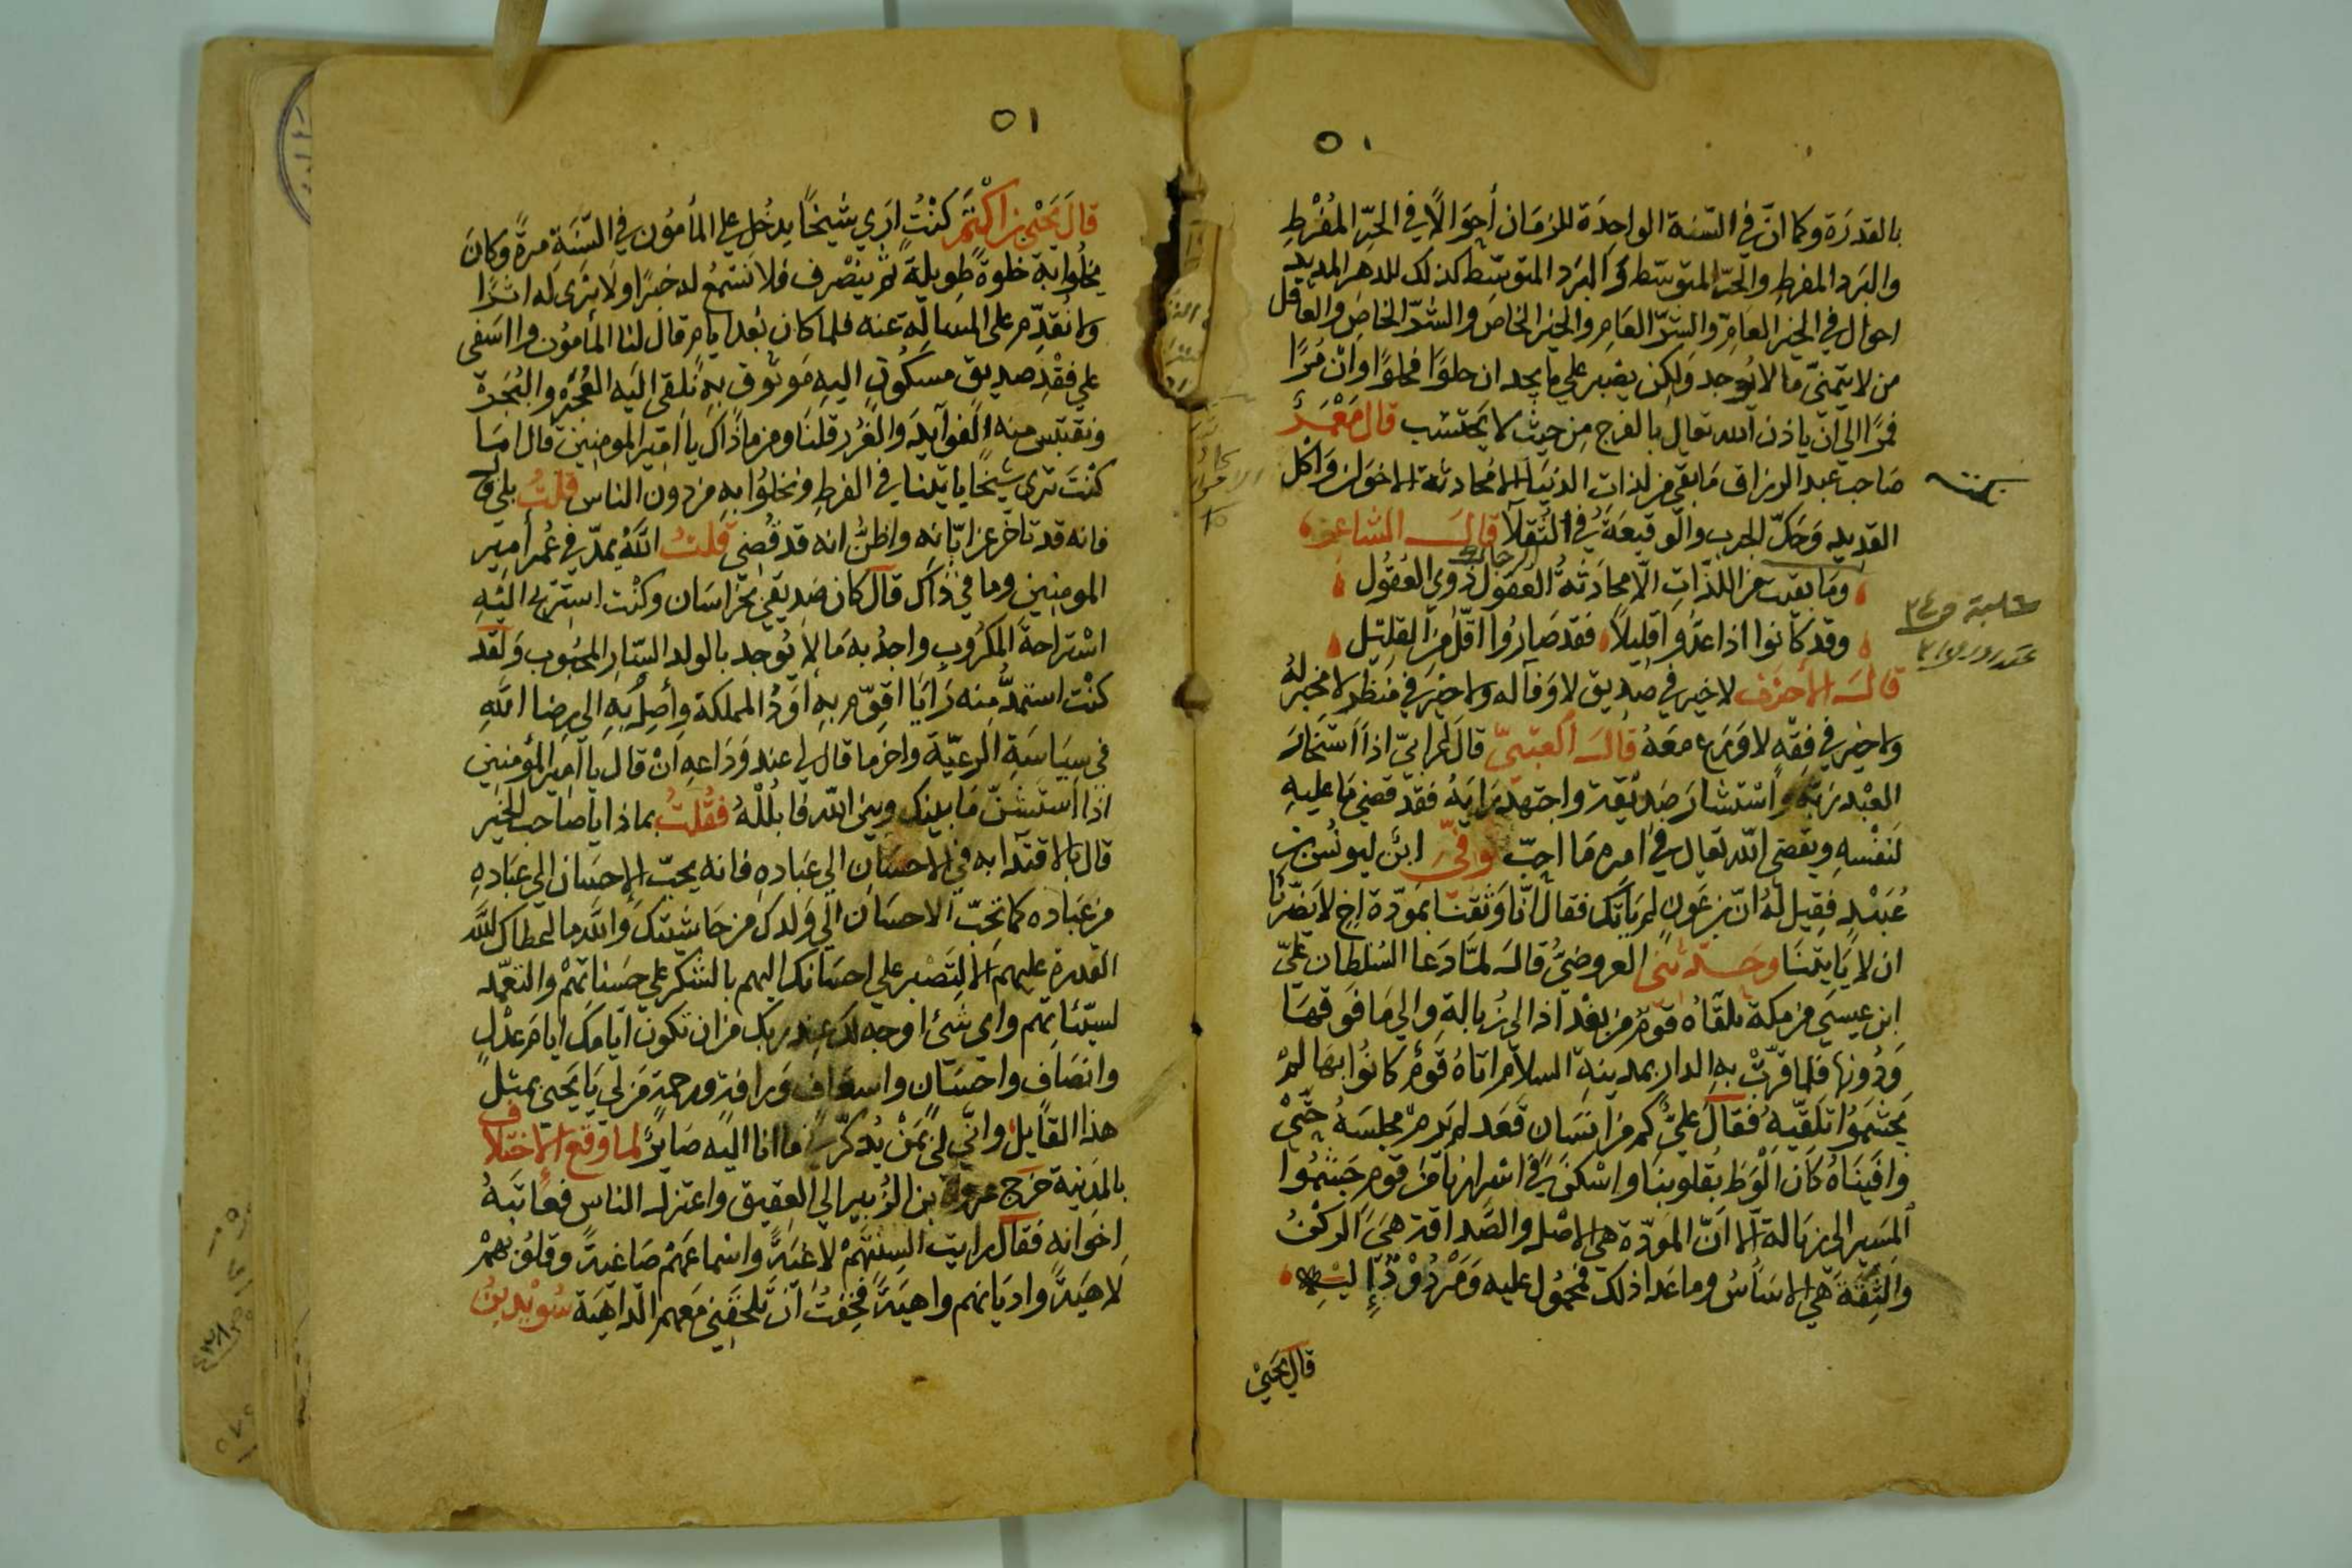 ٥١
بالقدرة وكما انّ في السّنة الواحدة للزمان أحوالاً في الحرّ المُفْرطِ
والبَرد المفرطِ والحرّ المتوسّط والبَرد المتوسّط كذلك للدهر المديد
احوال في الخير العامّ والشرّ العام والخير الخاص والشرّ الخاص والعاقل
من لا يتمنّى ما لا يُوجد ولكن يصبر على ما يجد ان حلوًا فحلوًا وان مُرًّا
فمرًّا الى ان ياذن الله تعالى بالفرج مِن حيث لا يحتسب قال مَعْمَرٌ
صَاحب عبد الرزاق مَا بقى من لذات الدنيا الا محادثة الاخوان واكل
القديد وحكّ الجرب والوقيعَة في الثّقلآ قالـ الشاعر
وما بقيت من اللذّاتِ الّا محادثةُ العقول ذوي العُقُول
الرجال
وقد كانوا اذا عدُّوا قليلاً فقد صَارُوا اقلّ من القليل
قالـ الأحنف لا خير في صديق لا وَفآ له ولا خير في منظر لا مخبر لهُ
ولا خير في فقهٍ لا وَرَع معَهُ قالـ العتبيّ قال اعرابيّ اذا استخار
العبْد ربّه واسْتشار صَديقه واجتهد رايَهُ فقد قضى مَا عليهِ
لنَفْسهِ ويقضى الله تعالى في امره مَا احبّ وفى ابن ليونُس بن
عُبَيْدٍ فقيل لهُ انّ بن عَونٍ لم يَاتك فقال انّا وَثقنا بمودّة اخ لا يَضرّنا
ان لا يَاتينَا وحـدثنى العروضيُّ قالـ لمّا دَعا السُلطان عَليّ
ابن عيسَى من مكة تلقّاهُ قومٌ من بغدَاذ الى زُبالة والى مَا فوقهَا
وَدُونها فلما قرّتْ بهِ الدار بمدينة السلام اتاهُ قومٌ كانُوا بها لمْ
يَجشمُوا تلقّيهِ فقال عليٌّ كم من انسَان قَعَد لم يَرمْ مجلسَهُ حتّىْ
وافَينَاهُ كَان الْوَط بقلوبنَا واسْكنَ في اسْرارنا من قومٍ جَشمُوا
المَسيرَ الى زبالة الّا انّ المَودّة هي الاصْل والصَّداقة هيَ الركنُ
والثِّقَة هي الاسَاسُ وما عدا ذلك فمحمُول عليه ومَرْدُوْدٌ اليْهِ
قال يحيىْ
تمت
٥١
قالَ يَحْيى بن اكْثَم كنْتُ ارى شيخًا يدخُل على المأمُون في السّنَة مرةً وكانَ
يخلُوا به خلوةً طويلةً ثم ينْصَرف فلا نسْمعُ له خبرًا ولا نرَى له اثرًا
ولا نُقدّم على المسالةِ عنه فلما كان بَعد ايامٍ قال لنا المأمُون وا اسَفى
على فقْدِ صديق مسكُونٍ اليهِ مَوثُوق بهِ نلقى اليه العُجَر والبُجَر
ونقتبس منه الفوآيدَ والغُرَر قلنَا ومن ذاك يا امير المومنين قال امَا
كنْتَ ترى شيخًا ياتينا في الفرطِ ونخلُوا به من دون الناس قلتُ بلى
فانه قد تاخر عن ابّانه واظنُّ انه قد قُضِى قلتُ اللّهُ يمدّ في عُمر أمير
المومنين وما في ذاك قال كان صَديقى بخراسَان وكنْت استريح اليْهِ
اسْتراحةَ المكرُوبِ واجدُ به مَا لا يُوجد بالولد السّار المحبُوب ولقد
كنْت استمدُّ منه رَايًا اقوّم به أَوَدَ المملكةِ وأصِلُ بهِ الى رضا اللهِ
في سيَاسَةِ الرعيّة واخر ما قال لي عند وَدَاعهِ انْ قال يا امير المؤمنين
اذا اسْتشنّ مَا بينك وبين الله فابلُلْهُ فقلتُ بماذا يا صَاحب الخير
قال بالاقتدا به في الاحسَان الى عبَاده فانه يحبّ الاحسَان الى عبَادهِ
من عبَاده كما تحبّ الاحسَان الى وَلدكَ من حَاشيَتك واللّه ما اعطاك الله
القدرة عليهم الّا لتَصْبر على احسَانك اليهم بالشكر على حَسناتهمْ والتغمّد
لسيّئاتِهم وايّ شئ اوجهُ لك عند ربك من ان تكون ايّامك ايامَ عدْلٍ
وانصَاف واحسَان واسعَاف وَرافةٍ ورحمةٍ مَن لي يَا يَحيى بمثل
هذا القايل وانّى لى بمَنْ يُذكّرنى ما انا اليه صَايرٌ لما وقع الاختلاف
بالمدينة خرَج عروة بن الزبير الى العقيق واعتزل الناس فعَاتبَهُ
اخوانه فقال رايت السِنَتَهمْ لاغيَةً واسْماعَهمْ صَاغيةً وقلُوبَهمْ
لاهيَةً واديَانهم واهيَةً فخفتُ انْ تَلحَقَني مَعهم الدّاهيَة سُوَيْد بن